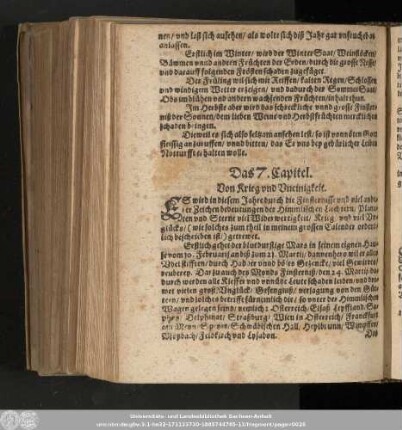 nen/ vnd laß sich ansehen/ als wolte sich diß Jahr gar vnfruchtbar
anlassen.
Erstlich im Winter/ wird der Winter Saat/ Weinstöcken/
Bäwmen vnnd andern Früchten der Erden/ durch die grosse Nesse/
vnd darauff folgenden Frösten schaden zugefüget.
Der Früling wil sich mit Reiffen/ kalten Regen/ Schlossen
vnd windigem Wetter erzeigen/ vnd dadurch der Sommer Saat/
Obs vnd blühen vnd andern wachsenden Früchten/
Im Herbste aber wird das schreckliche vnnd grosse Finster-
niß der Sonnen/ dem lieben Weine vnd Herbstfrüchten mercklichen
schaden bringen.
Dieweil es sich also seltzam ansehen lest/ so ist vonnöten Gott
fleissig anzuruffen/ vnnd bitten/ das Er vns bey gebürlicher Leibs
Notturfft erhalten wolle.
Das 7. Capitel.
Von Krieg vnd Vneinigkeit.
ES wird in diesem Jahre durch die Finsternusse vnd viel ande-
rer Zeichen bedeutungen der Himmlischen Liechtern/ Plane-
ten vnd Sterne viel Widerwertigkeit/ Krieg vnd viel Vn-
glücks/ (wie solches zum theil in meinem grossen Calender ordent-
lich beschrieben ist/) gedrewet.
Erstlich gehet der blutdurstige Mars in seinem eignen Hau-
se vom 30. Februarij an biß zum 23. Martij/ dannenhero wil er alles
Vbel stifften/ durch Hader vnnd böses Gezencke/ viel Gewitter/
. Dar zu auch des Monds Finsternuß/ den 24. Martij die
durch werden alle Kieffer vnd vnrühe Leute schaden leiden/ vnd den
wer vielen groß Vnglück/ Gefengnuß/ verjagung von den Gü-
tern/ vnd solches betrifft fürnemlich die/ so vnter der Himmlischen
Wagen gelegen seind/ nemlich: Osterreich/ Elsaß/ Lyffland/ Sa-
phoy/ Delphinat/ Straßburg/ Wien in Osterreich/ Franckfurt
am Meyn/ Speyer/ Schwäbischen Hall/ Heydelbronn/ Wimpffen/
Mospach/ Feldkirch vnd Lysabon.
Die
Universitäts- und Landesbibliothek Sachsen-Anhalt
urn:nbn:de:gbv:3.1-